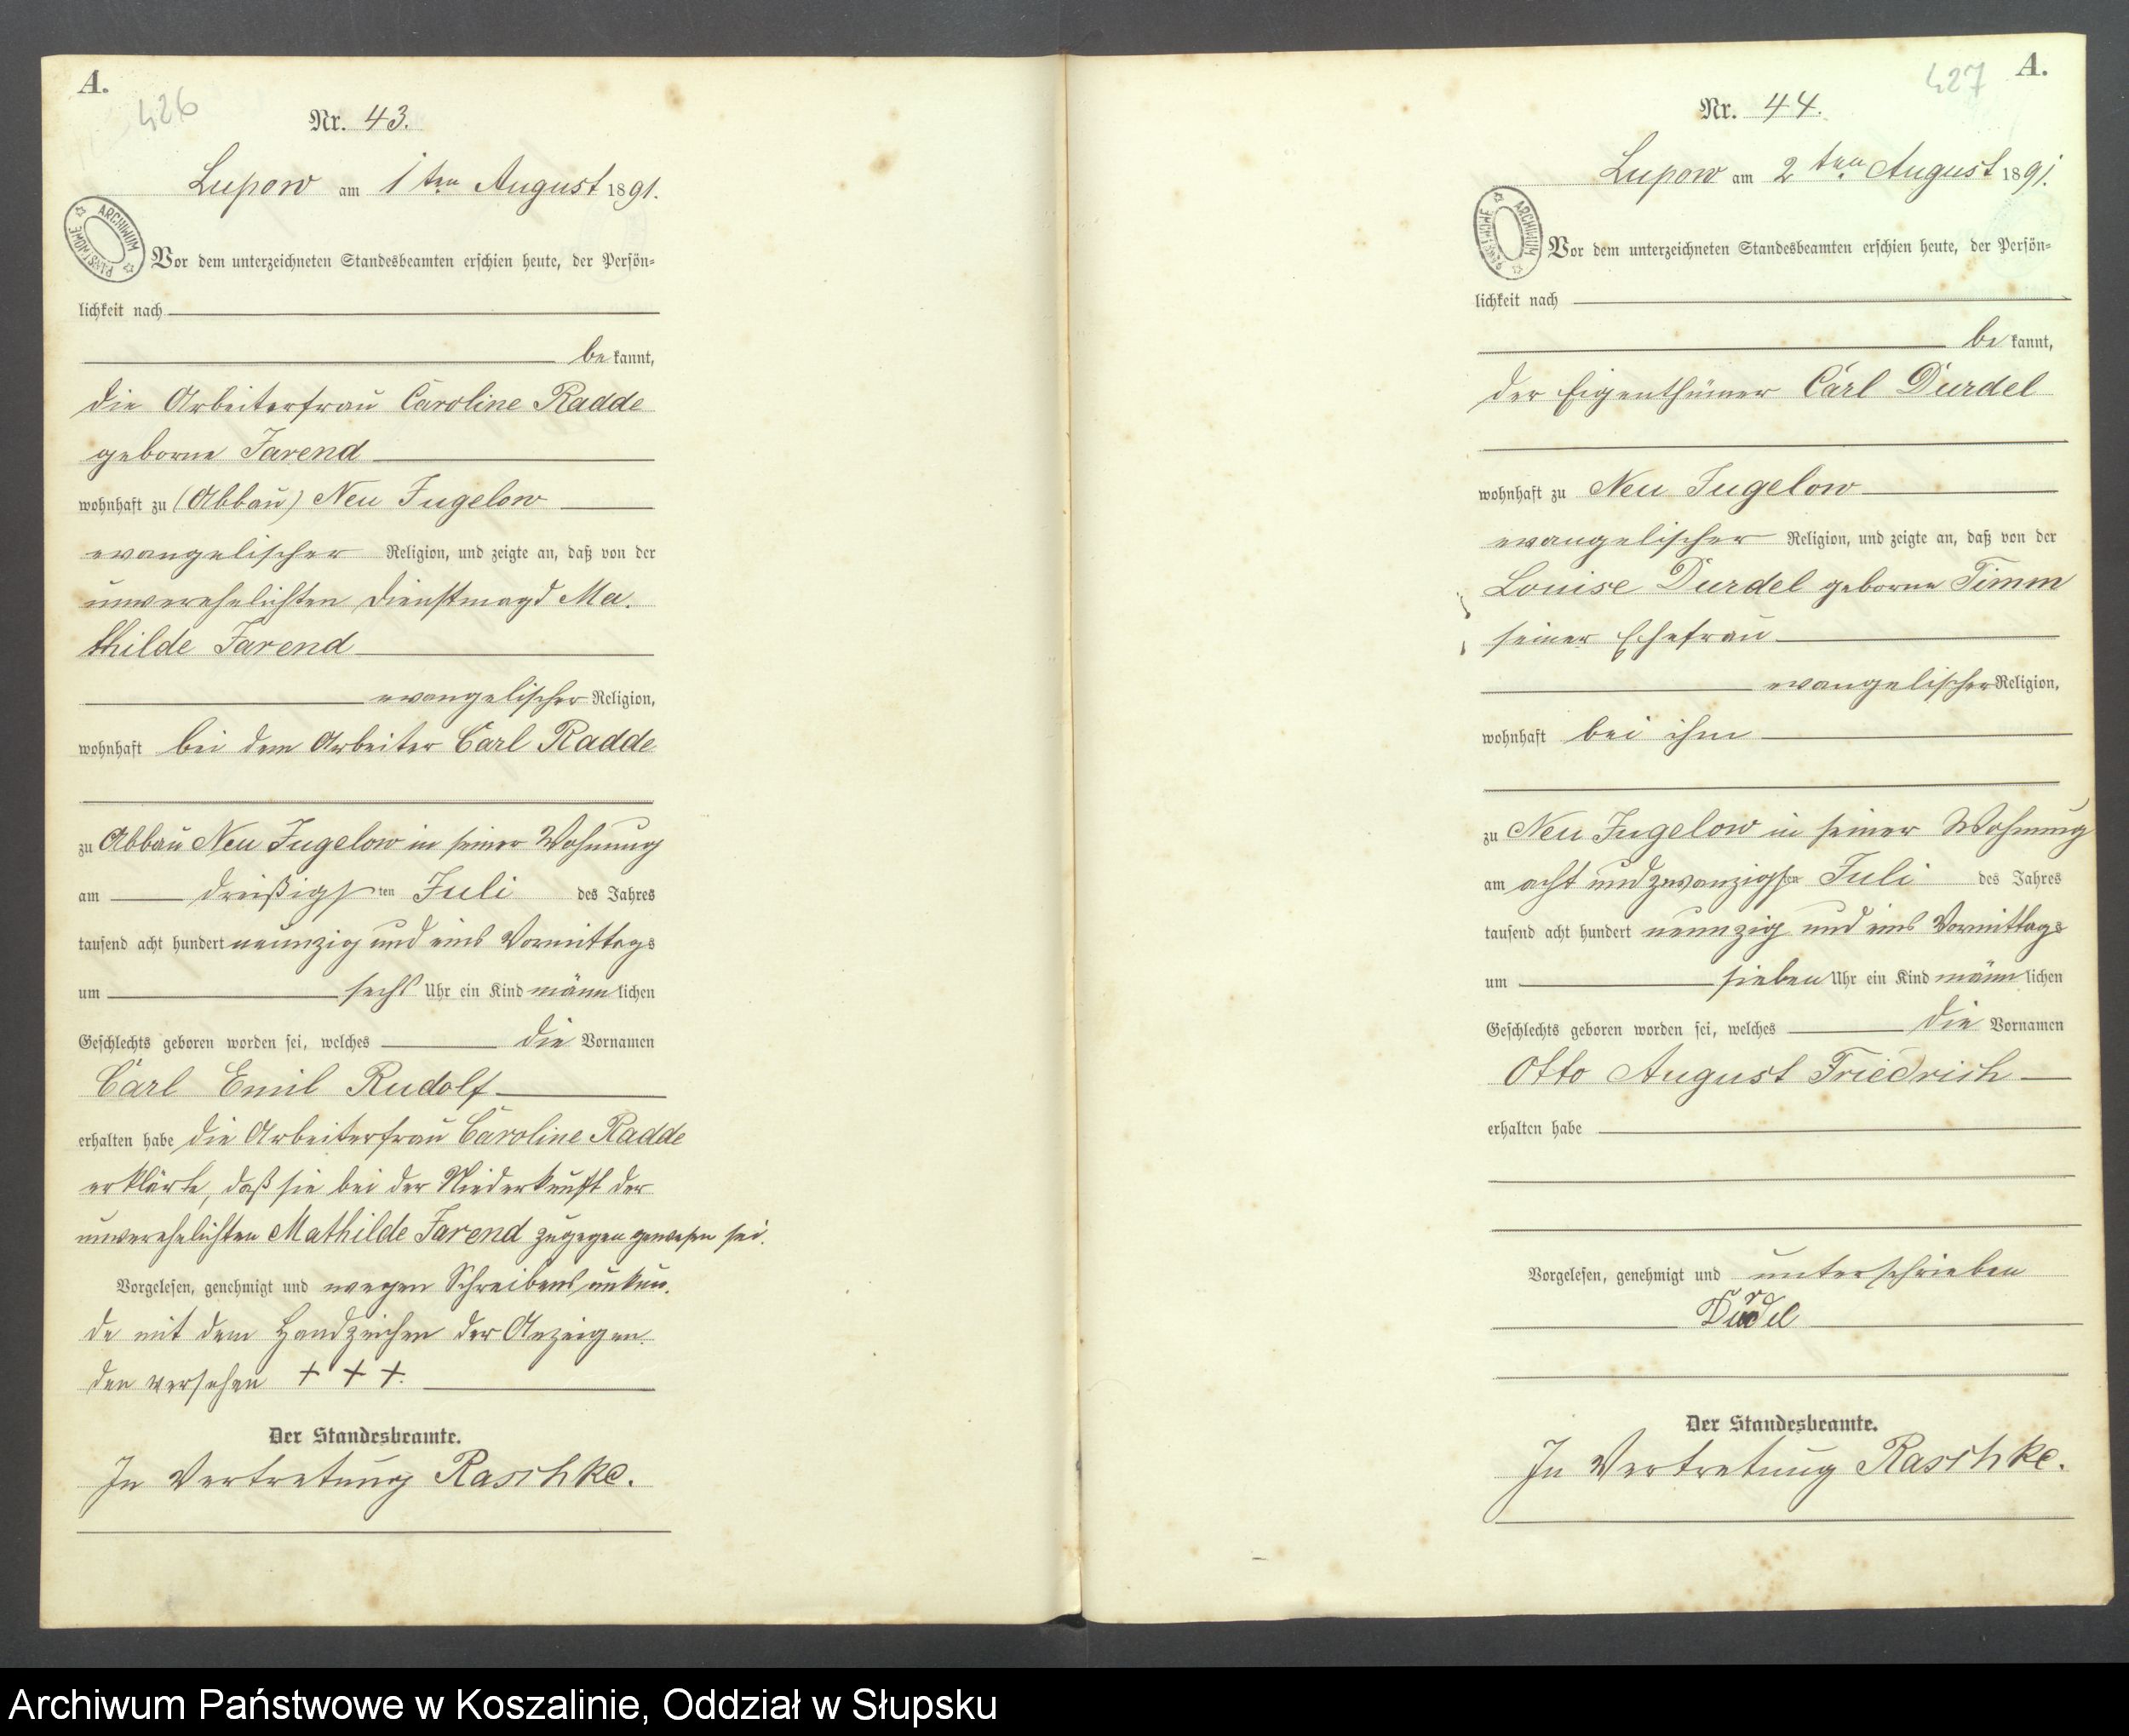 A.
426
Nr. 43.
Lupow am 1ten August 1891.
ARCHIWUM PAŃSTWOWE
Vor dem unterzeichneten Standesbeamten erschien heute, der Persön-
lichkeit nach
bekannt,
die Arbeiterfrau Caroline Radde
geborne Jarend
wohnhaft zu (Abbau) Neu Jugelow
evangelischer Religion, und zeigte an, daß von der
unverehelichten Dienstmagd Ma-
thilde Jarend
evangelischer Religion,
wohnhaft bei dem Arbeiter Carl Radde
zu Abbau Neu Jugelow in seiner Wohnung
am dreißigsten Juli des Jahres
tausend acht hundert neunzig und eins Vormittags
um sechs Uhr ein Kind männlichen
Geschlechts geboren worden sei, welches die Vornamen
Carl Emil Rudolf
erhalten habe die Arbeiterfrau Caroline Radde
erklärte, daß sie bei der Niederkunft der
unverehelichten Mathilde Jarend zugegen gewesen sei.
Vorgelesen, genehmigt und wegen Schreibensunkun-
de mit dem Handzeichen der Anzeigen-
den versehen + + +.
Der Standesbeamte.
In Vertretung Raschke.
A.
427
Nr. 44.
Lupow am 2ten August 1891.
ARCHIWUM PAŃSTWOWE
Vor dem unterzeichneten Standesbeamten erschien heute, der Persön-
lichkeit nach
bekannt,
der Eigenthümer Carl Durdel
wohnhaft zu Neu Jugelow
evangelischer Religion, und zeigte an, daß von der
Louise Durdel geborne Timm
seiner Ehefrau
evangelischer Religion,
wohnhaft bei ihm
zu Neu Jugelow in seiner Wohnung
am acht und zwanzigsten Juli des Jahres
tausend acht hundert neunzig und eins Vormittags
um sieben Uhr ein Kind männlichen
Geschlechts geboren worden sei, welches die Vornamen
Otto August Friedrich
erhalten habe
Vorgelesen, genehmigt und unterschrieben
Durdel
Der Standesbeamte.
In Vertretung Raschke.
Archiwum Państwowe w Koszalinie, Oddział w Słupsku